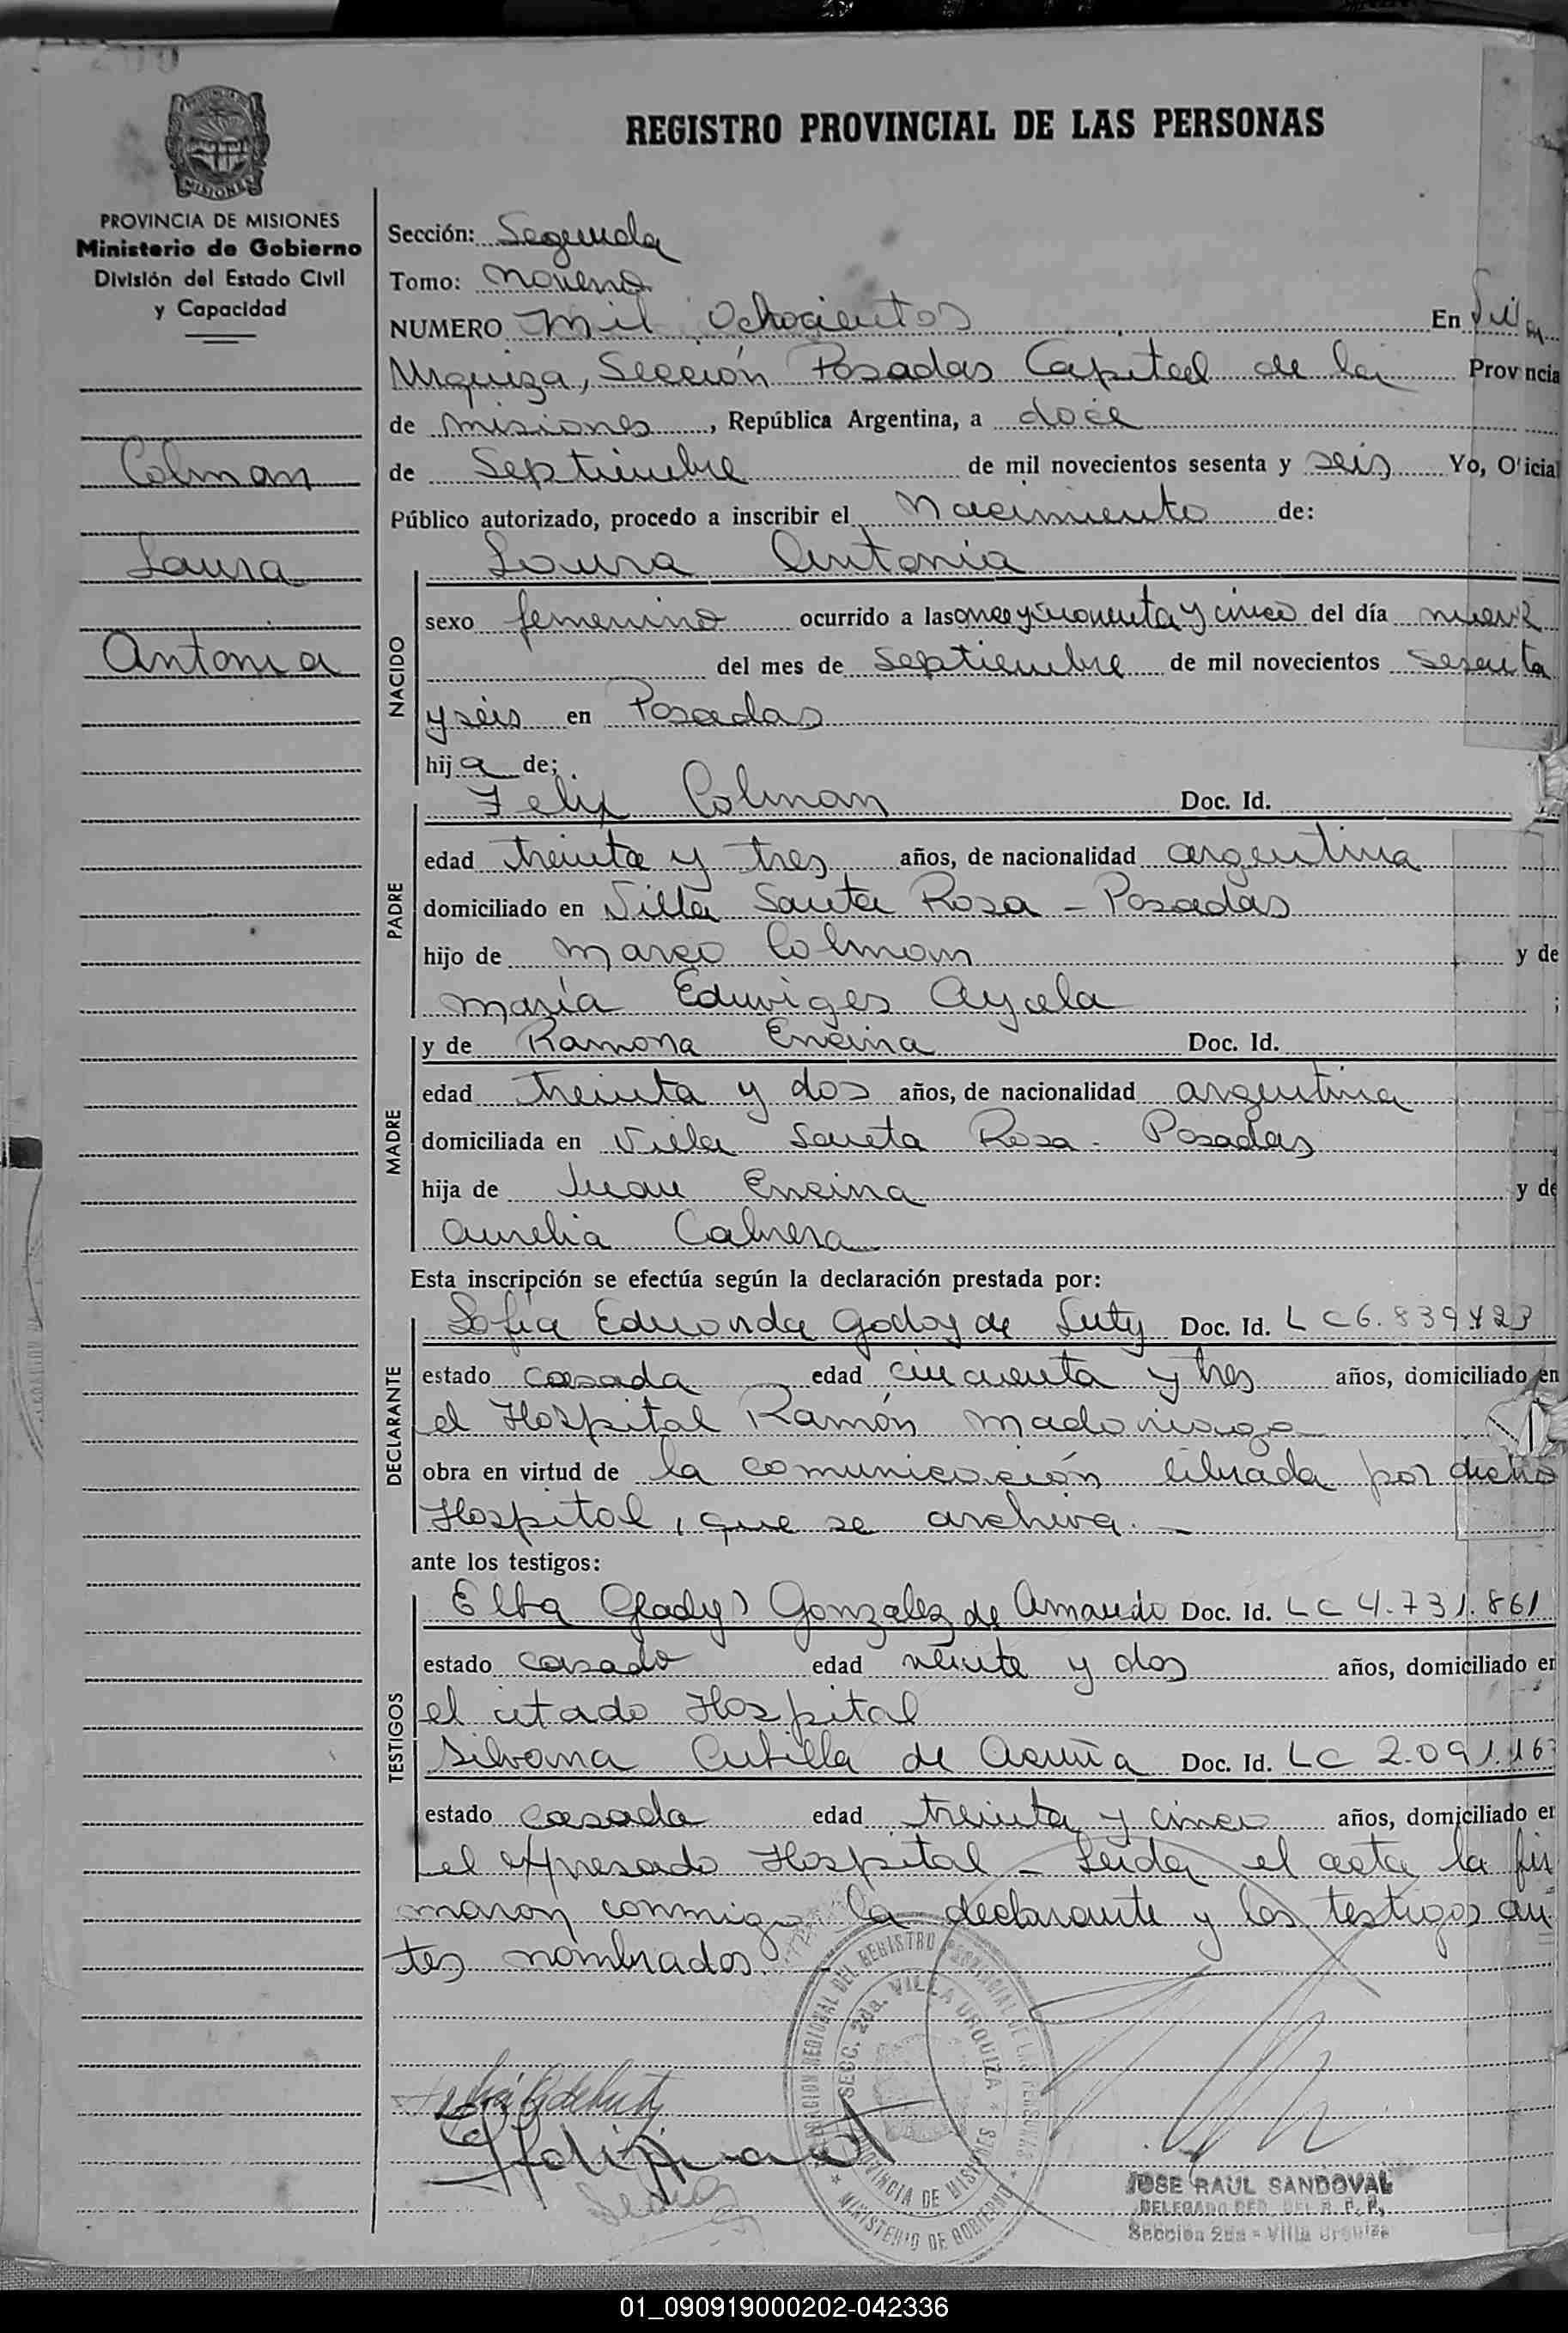 REGISTRO PROVINCIAL DE LAS PERSONAS
MISIONES
PROVINCIA DE MISIONES
Ministerio de Gobierno
División del Estado Civil
y Capacidad
Colman
Laura
Antonia
Sección: Segunda
Tomo: Noveno
NUMERO mil ochocientos En Villa
Urquiza, Sección Posadas Capital de la Provincia
de misiones, República Argentina, a doce
de Septiembre de mil novecientos sesenta y seis Yo, Oficial
Público autorizado, procedo a inscribir el Nacimiento de:
Laura Antonia
NACIDO
sexo femenino ocurrido a las once y cincuenta y cinco del día nueve
del mes de Septiembre de mil novecientos sesenta
y seis en Posadas
hija de;
PADRE
Felix Colman Doc. Id.
edad treinta y tres años, de nacionalidad argentina
domiciliado en Villa Santa Rosa - Posadas
hijo de Marco Colman y de
María Eduviges Ayala
MADRE
y de Ramona Encina Doc. Id.
edad treinta y dos años, de nacionalidad argentina
domiciliada en Villa Santa Rosa - Posadas
hija de Juan Encina y de
Aurelia Cabrera
Esta inscripción se efectúa según la declaración prestada por:
DECLARANTE
Sofía Eduarda Godoy de Luty Doc. Id. LC 6.839423
estado casada edad cincuenta y tres años, domiciliado en
el Hospital Ramón Madariaga
obra en virtud de la comunicación librada por dicho
Hospital, que se archiva.-
ante los testigos:
TESTIGOS
Elba Gladys Gonzalez de Doc. Id. LC 4.731.861
estado casado edad veinte y dos años, domiciliado en
el citado Hospital
Silvana Cubilla de Acuña Doc. Id. LC 2.091.163
estado casada edad treinta y cinco años, domiciliado en
el expresado Hospital - Leida el acta la fir
maron conmigo la declarante y los testigos an
tes nombrados.
SECC. 2da. VILLA URQUIZA
PROVINCIA DE MISIONES
MINISTERIO DE GOBIERNO
JOSE RAUL SANDOVAL
DELEGADO REG. DEL R. P. P.
Sección 2da - Villa Urquiza
01_090919000202-042336